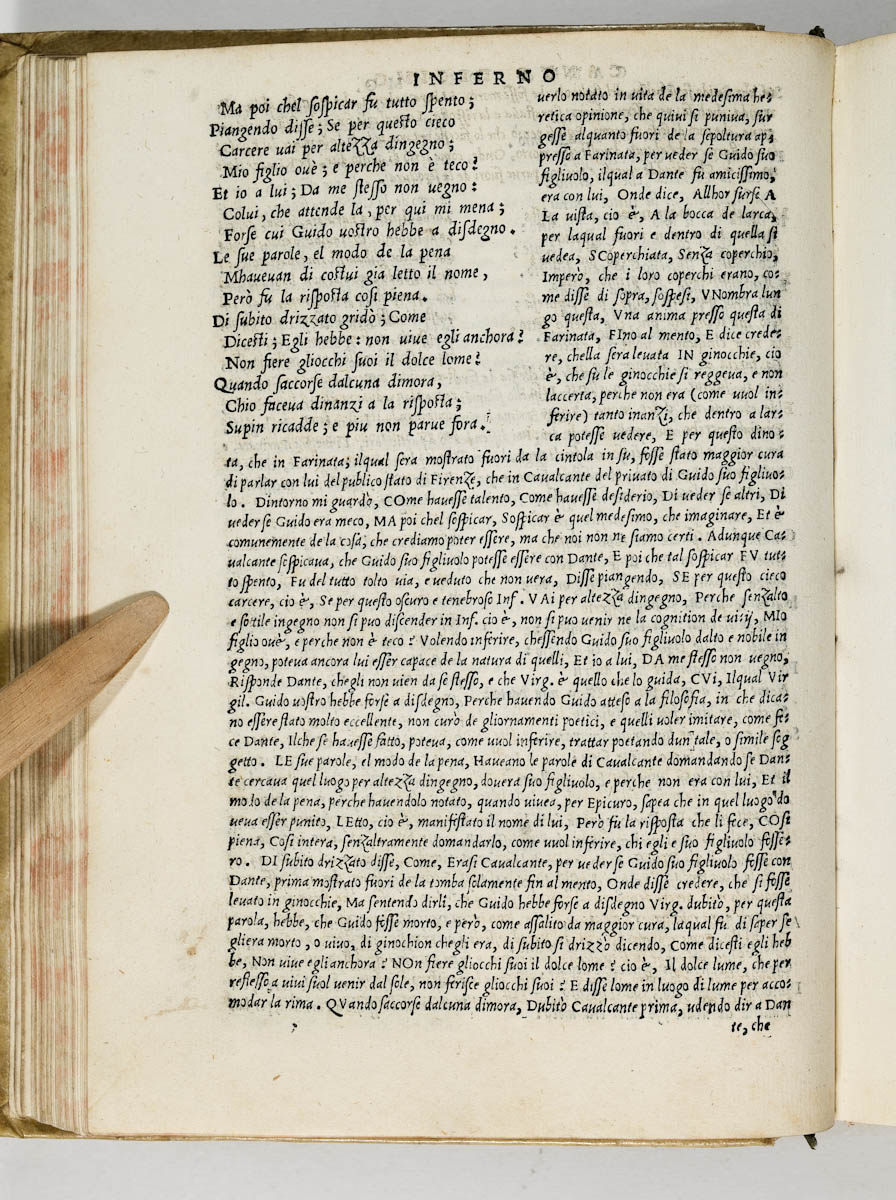 INFERNO
Ma poi chel sospicar fu tutto spento;
Piangendo disse; Se per questo cieco
Carcere uai per altezza dingegno;
Mio figlio ouè; e perche non è teco?
Et io a lui; Da me stesso non uegno:
Colui, che attende la, per qui mi mena;
Forse cui Guido uostro hebbe a disdegno.
Le sue parole, el modo de la pena
Mhaueuan di costui gia letto il nome,
Però fu la risposta cosi piena.
Di subito drizzato gridò; Come
Dicesti; Egli hebbe: non uiue egli anchora?
Non fiere gliocchi suoi il dolce lome?
Quando saccorse dalcuna dimora,
Chio faceua dinanzi a la risposta;
Supin ricadde; e piu non parue fora.
uerlo notato in uita de la medesima he-
retica opinione, che quiui si puniua, sur
gesse alquanto fuori de la sepoltura ap-
presso a Farinata, per ueder se Guido suo
figliuolo, ilqual a Dante fu amicissimo,
era con lui, Onde dice, Allhor surse A
La uista, cio è, A la bocca de larca,
per laqual fuori e dentro di quella si
uedea, SCoperchiata, Senza coperchio,
Imperò, che i loro coperchi erano, co-
me disse di sopra, sospesi, VNombra lun
go questa, Vna anima presso questa di
Farinata, FIno al mento, E dice crede-
re, chella sera leuata IN ginocchie, cio
è, che su le ginocchie si reggeua, e non
laccerta, perche non era (come uuol in-
ferire) tanto inanzi, che dentro a lar-
ca potesse uedere, E per questo dino-
ta, che in Farinata; ilqual sera mostrato fuori da la cintola in su, fosse stato maggior cura
di parlar con lui del publico stato di Firenze, che in Caualcante del priuato di Guido suo figliuo-
lo. Dintorno mi guardò, COme hauesse talento, Come hauesse desiderio, Di ueder se altri, Di
ueder se Guido era meco, MA poi chel sospicar, Sospicar è quel medesimo, che imaginare, Et è
comunemente de la cosa, che crediamo poter essere, ma che noi non ne siamo certi. Adunque Ca-
ualcante sospicaua, che Guido suo figliuolo potesse essere con Dante, E poi che tal sospicar FV tut-
to spento, Fu del tutto tolto uia, e ueduto che non uera, Disse piangendo, SE per questo cieco
carcere, cio è, Se per questo oscuro e tenebroso Inf. VAi per altezza dingegno, Perche senzalto
e sottile ingegno non si puo discender in Inf. cio è, non si puo uenir ne la cognition de uitij, MIo
figlio ouè, e perche non è teco? Volendo inferire, chessendo Guido suo figliuolo dalto e nobile in
gegno, poteua ancora lui esser capace de la natura di quelli, Et io a lui, DA me stesso non uegno,
Risponde Dante, chegli non uien da se stesso, e che Virg. è quello che lo guida, CVi, Ilqual Vir
gil. Guido uostro hebbe forse a disdegno, Perche hauendo Guido atteso a la filosofia, in che dica-
no essere stato molto eccellente, non curò de gliornamenti poetici, e quelli uoler imitare, come fe-
ce Dante, Ilche se hauesse fatto, poteua, come uuol inferire, trattar poetando dun tale, o simile sog
getto. LE sue parole, el modo de la pena, Haueano le parole di Caualcante domandando se Dan-
te cercaua quel luogo per altezza dingegno, douera suo figliuolo, e perche non era con lui, Et il
modo de la pena, perche hauendolo notato, quando uiuea, per Epicuro, sapea che in quel luogo do
ueua esser punito, LEtto, cio è, manifestato il nome di lui, Però fu la risposta che li fece, COsi
piena, Cosi intera, senzaltramente domandarlo, come uuol inferire, chi egli e suo figliuolo fosse-
ro. DI subito drizzato disse, Come, Erasi Caualcante, per ueder se Guido suo figliuolo fosse con
Dante, prima mostrato fuori de la tomba solamente fin al mento, Onde disse credere, che si fosse
leuato in ginocchie, Ma sentendo dirli, che Guido hebbe forse a disdegno Virg. dubitò, per questa
parola, hebbe, che Guido fosse morto, e però, come assalito da maggior cura, laqual fu di saper se
gliera morto, o uiuo, di ginochion chegli era, di subito si drizzò dicendo, Come dicesti egli heb
be, Non uiue egli anchora? NOn fiere gliocchi suoi il dolce lome? cio è, Il dolce lume, che per
reflesso a uiui suol uenir dal sole, non ferisce gliocchi suoi? E disse lome in luogo di lume per acco-
modar la rima. QVando saccorse dalcuna dimora, Dubitò Caualcante prima, udendo dir a Dan
te, che